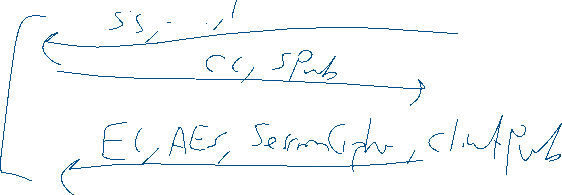 SS, . . , 1
CC, SPub
EC, AES, SessionCiphr, clientPub